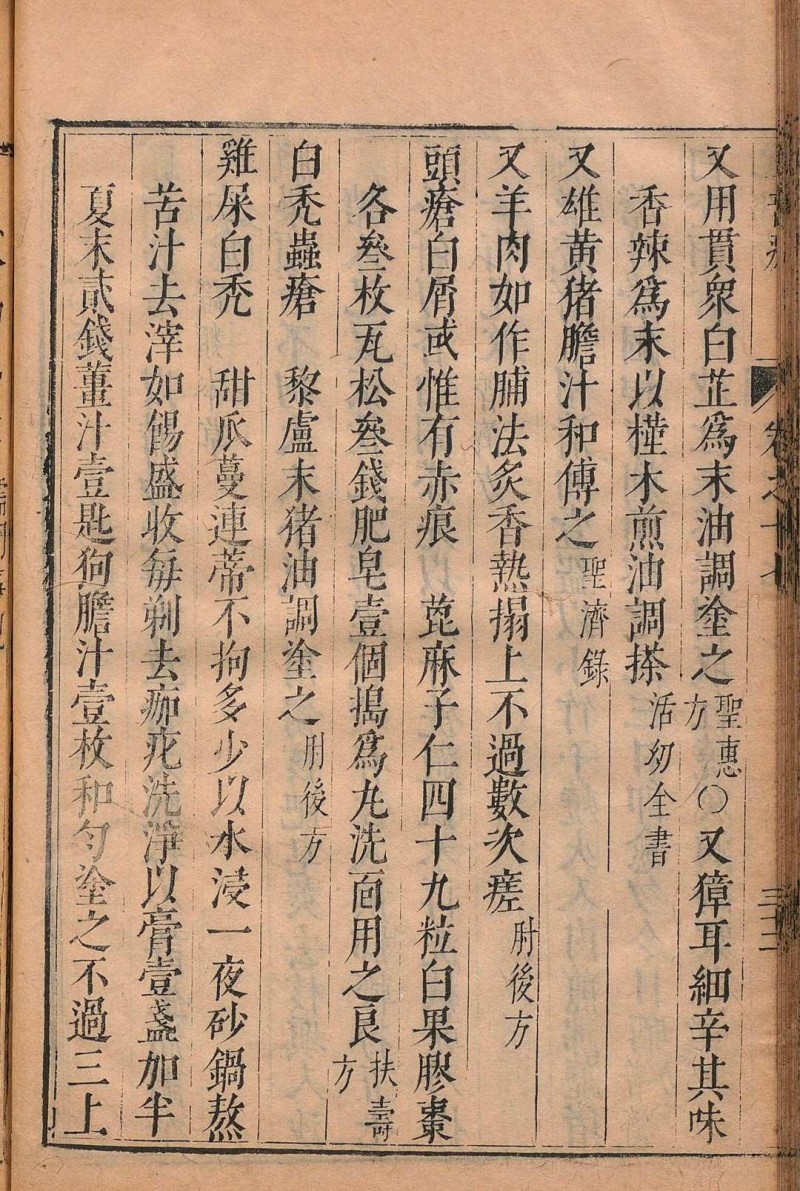 又用貫衆白芷爲末油調塗之聖惠方〇又獐耳細辛其味
香辣爲末以槿木煎油調搽活幼全書
又雄黄猪膽汁和傅之聖濟錄
又羊肉如作脯法炙香熱搨上不過數次瘥肘後方
頭瘡白屑或惟有赤痕 萞麻子仁四十九粒白果膠棗
各叄枚瓦松叄錢肥皂壹個搗爲丸洗面用之良扶壽方
白禿蟲瘡 黎盧末猪油調塗之肘後方
雞屎白禿 甜瓜蔓連蒂不拘多少以水浸一夜砂鍋熬
苦汁去滓如餳盛收每剃去痂疕洗淨以膏壹盞加半
夏末貳錢薑汁壹匙狗膽汁壹枚和勻塗之不過三上
卷之十七